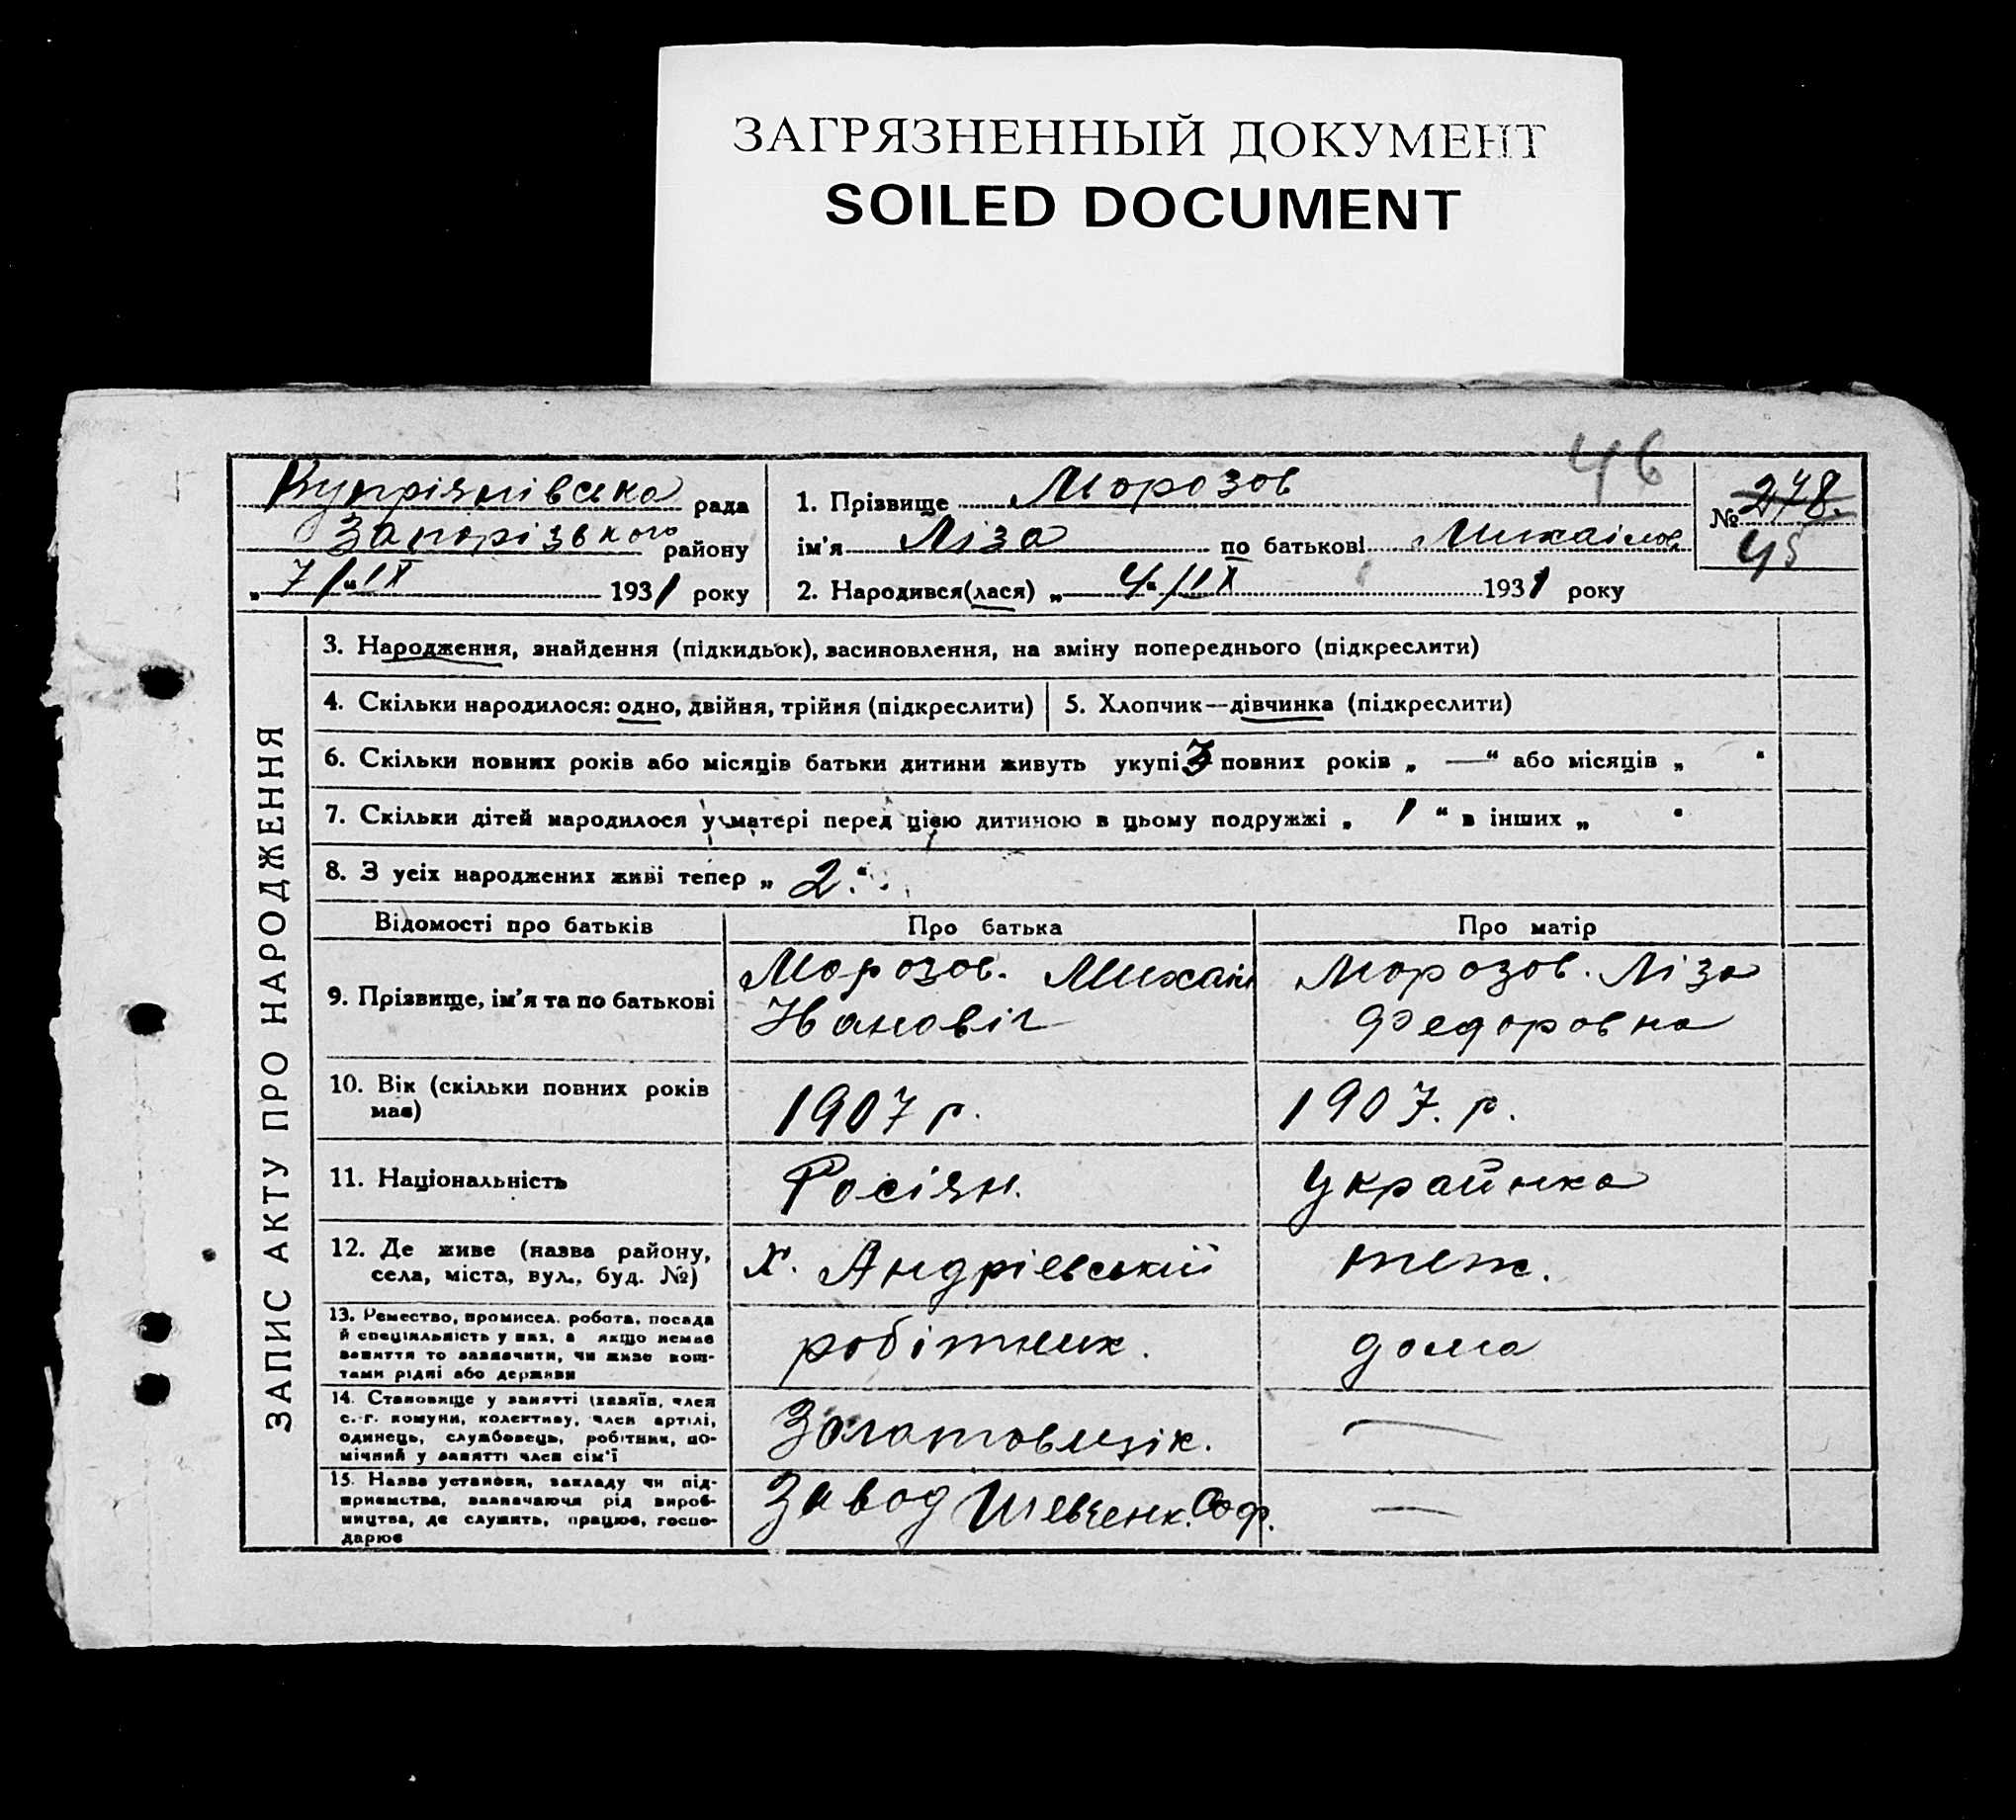 ЗАГРЯЗНЕННЫЙ ДОКУМЕНТ
SOILED DOCUMENT
46
Купріянівська рада
Запорізького району
„7/"IX 1931 року
1. Прізвище Морозов
ім'я Ліза по батькові Михаілов
2. Народився(лася) „4"/IX 1931 року
№ 248.
45
ЗАПИС АКТУ ПРО НАРОДЖЕННЯ
3. Народження, знайдення (підкидьок), васиновлення, на зміну попереднього (підкреслити)
4. Скільки народилося: одно, двійня, трійня (підкреслити)
5. Хлопчик—дівчинка (підкреслити)
6. Скільки повних років або місяців батьки дитини живуть укупі 3 повних років „ —“ або місяців „ “
7. Скільки дітей народилося у матері перед цією дитиною в цьому подружжі „ 1 “ в інших „ “
8. З усіх народжених живі тепер „ 2. “
Відомості про батьків
Про батька
Про матір
9. Прізвище, ім'я та по батькові
Морозов. Михаіл
Іванович
Морозов. Ліза
Федоровна
10. Вік (скільки повних років
має)
1907 р.
1907. р.
11. Національність
Росіян.
Українка
12. Де живе (назва району,
села, міста, вул., буд. №)
х. Андріевській
теж.
13. Ремество, промисел. робота, посада
й спеціяльність у них, а якщо немає
заняття то зазначити, чи живе кош-
тами рідні або держави
робітник.
дома
14. Становище у занятті (хазяїн, член
с.-г. комуни, колективу, член артілі,
одинець, службовець, робітник, по-
мічний у занятті член сім'ї
—
15. Назва установи, закладу чи під-
приємства, зазначаючи рід вироб-
ництва, де служить, працює, госпо-
дарює
Завод Шевченк. Соф.
—